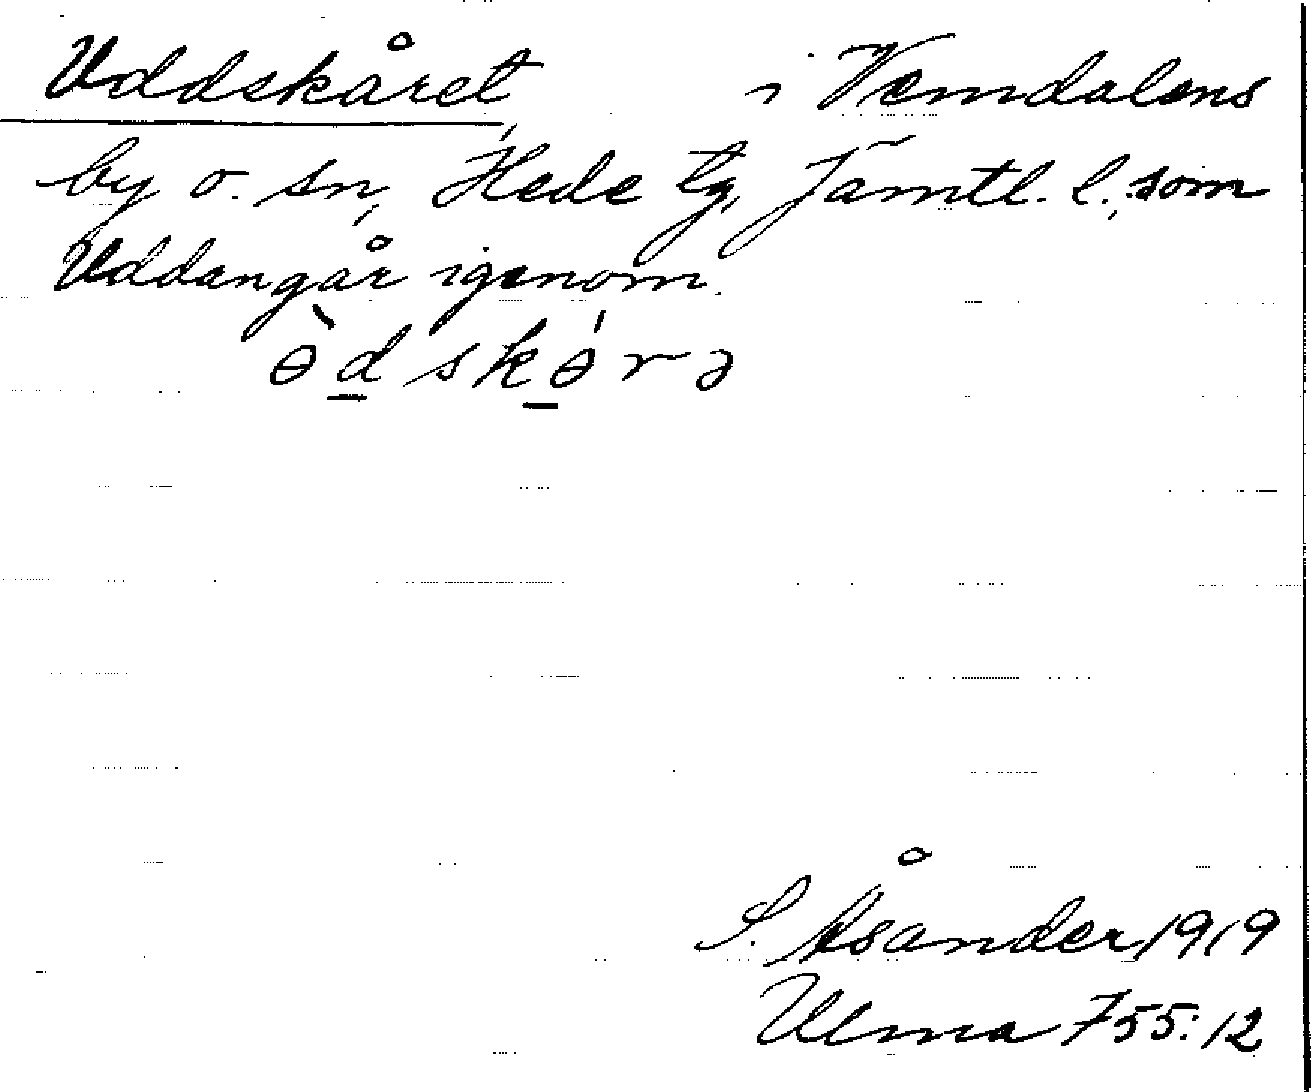 Uddskåret, i Vemdalens
by o. sn, Hede tg, Jämtl. l., som
Uddangår igenom.
ɵ̀dskɵ́rə
S. Åsander 1919
Ulma 755:12